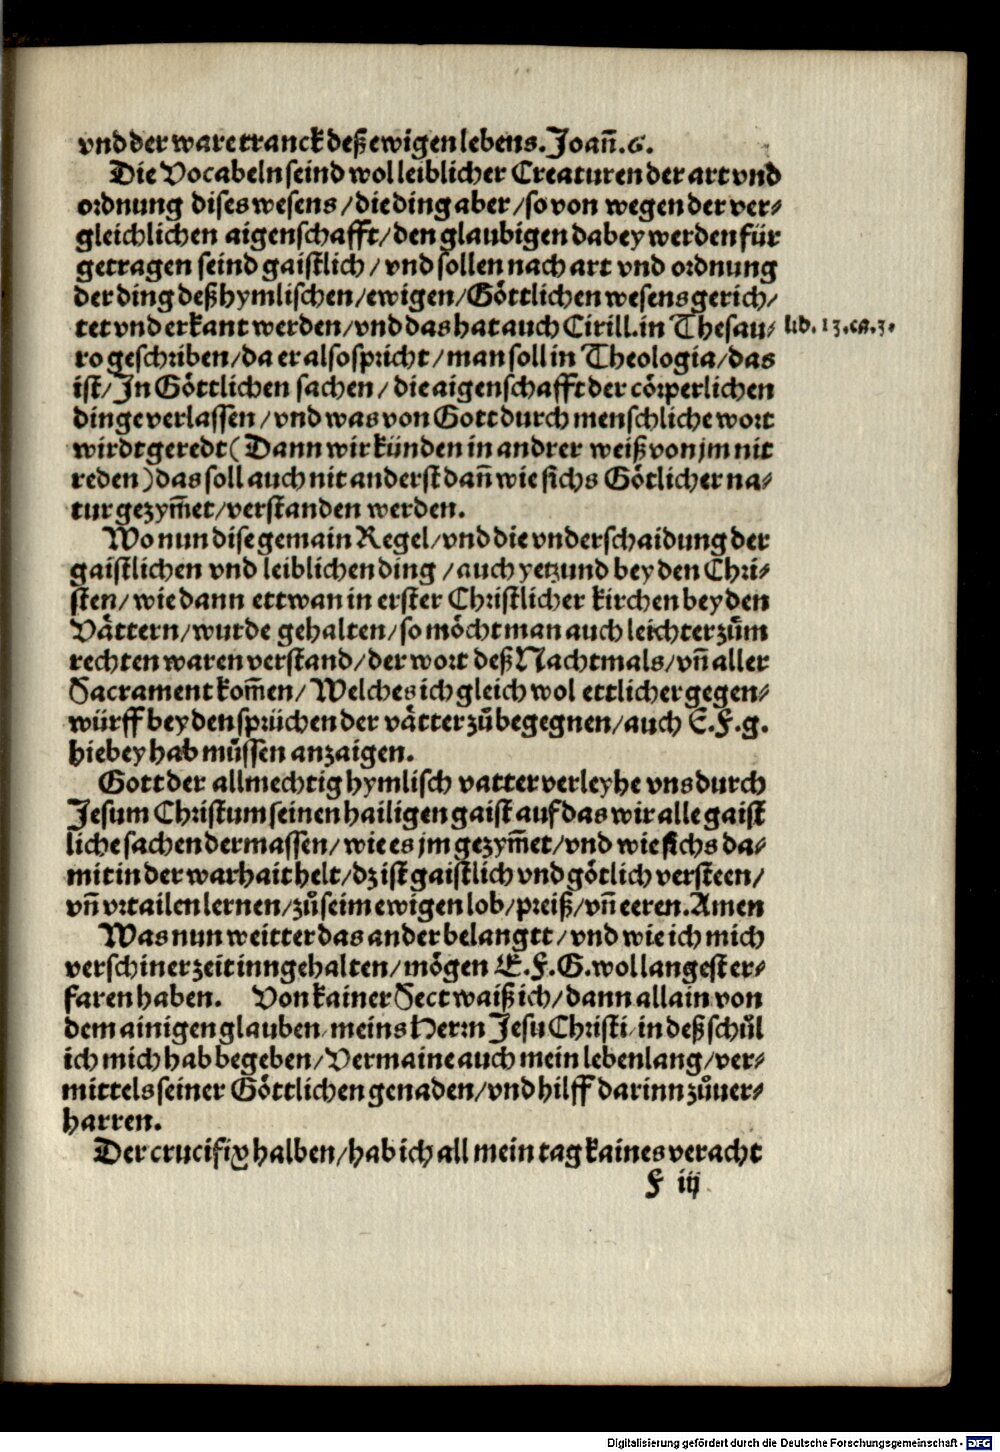 vnd der ware tranck deß ewigen lebens. Joañ.6.
Die Vocabeln seind wol leiblicher Creaturen der art vnd
ordnung dises wesens / die ding aber / so von wegen der ver⸗
gleichlichen aigenschafft / den glaubigen dabey werden für
getragen seind gaistlich / vnd sollen nach art vnd ordnung
der ding deß hymlischen / ewigen / Göttlichen wesens gerich /
tet vnd erkant werden / vnd das hat auch Cirill. in Thesau⸗ lib. 13. ca. 3.
ro geschriben / da er also spricht / man soll in Theologia / das
ist / In Göttlichen sachen / die aigenschafft der cörperlichen
dinge verlassen / vnd was von Gott durch menschliche wort
wirdt geredt (Dann wir künden in andrer weiß von jm nit
reden) das soll auch nit anderst dañ wie sichs Götlicher na⸗
tur gezym̃et / verstanden werden.
Wo nun dise gemain Regel / vnd die vnderschaidung der
gaistlichen vnd leiblichen ding / auch yetzund bey den Chri⸗
sten / wie dann ettwan in erster Christlicher kirchen bey den
Vättern / wurde gehalten / so möcht man auch leichter zům
rechten waren verstand / der wort deß Nachtmals / vñ aller
Sacrament kom̃en / Welches ich gleich wol ettlicher gegen⸗
würff bey den sprüchen der vätter zů begegnen / auch E.F.g.
hiebey hab müssen anzaigen.
Gott der allmechtig hymlisch vatter verleyhe vns durch
Jesum Christum seinen hailigen gaist auf das wir alle gaist
liche sachen dermassen / wie es jm gezym̃et / vnd wie sichs da⸗
mit in der warhait helt / dz ist gaistlich vnd götlich versteen /
vñ vrtailen lernen / zů seim ewigen lob / preiß / vñ eeren. Amen
Was nun weitter das ander belangtt / vnd wie ich mich
verschiner zeit inn gehalten / mögen E.F.G. wol langest er⸗
faren haben. Von kainer Sect waiß ich / dann allain von
dem ainigen glauben / meins Herrn Jesu Christi / in deß schůl
ich mich hab begeben / Vermaine auch mein lebenlang / ver⸗
mittels seiner Göttlichen genaden / vnd hilff darinn zůuer⸗
harren.
Der crucifix halben / hab ich all mein tag kaines veracht
F iij
Digitalisierung gefördert durch die Deutsche Forschungsgemeinschaft - DFG